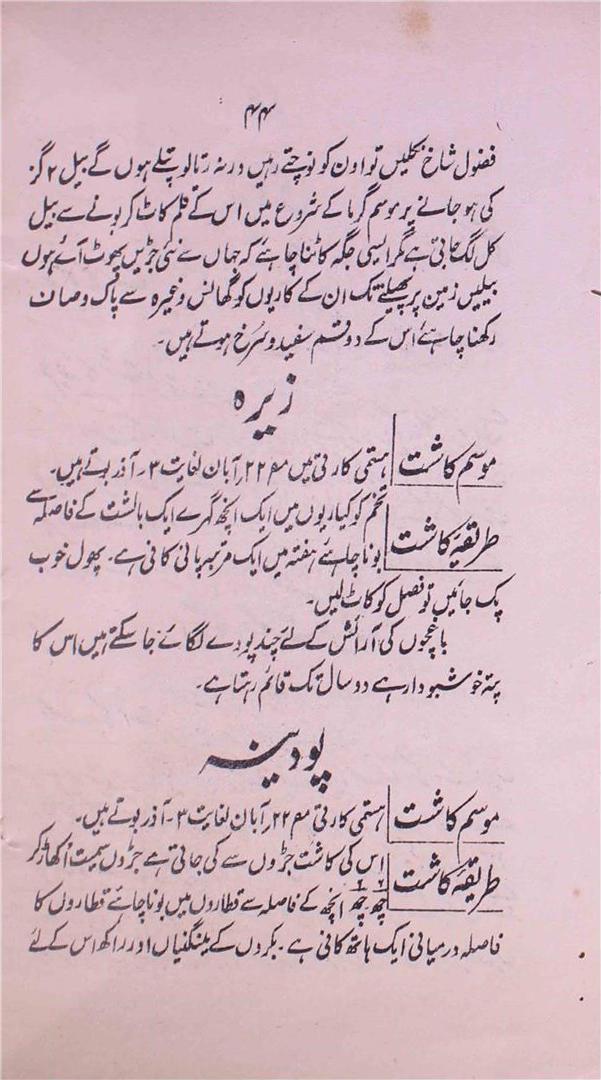 ۴۴
فضول شاخ نکلیں تو اون کو نوچتے رہیں ورنہ رتالو پتلے ہوں گے بیل ۲ گز
کی ہو جانے پر موسم گرما کے شروع میں اس کے قلم کاٹ کر بونے سے بیل
کل لگ جاتی ہے مگر ایسی جگہ کاٹنا چاہئے کہ جہاں سے نئی جڑیں پھوٹ آئے ہوں
بیلیں زمین پر پھیلتے تک ان کے کاریوں کو گھانس وغیرہ سے پاک و صاف
رکھنا چاہئے اس کے دو قسم سفید و سرخ ہوتے ہیں۔
زیرہ
موسم کاشت ہستمی کارتی میں م ۲۲ آبان لغایت ۳۔ آذر بوتے ہیں۔
طریقہ کاشت تخم کو کیاریوں میں ایک انچھ گہرے ایک بالشت کے فاصلہ سے
بونا چاہئے ہفتہ میں ایک مرتبہ پانی کافی ہے۔ پھول خوب
پک جائیں تو فصل کو کاٹ لیں۔
باغچوں کی آرائش کے لئے چند پودے لگائے جا سکتے ہیں اس کا
پتہ خوشبودار ہے دو سال تک قائم رہتا ہے۔
پودینہ
موسم کاشت ہستمی کارتی م ۲۲ آبان لغایت ۳۔ آذر بوتے ہیں۔
طریقہ کاشت اس کی کاشت جڑوں سے کی جاتی ہے جڑوں سمیت اُکھاڑ کر
چھ چھ انچھ کے فاصلہ سے قطاروں میں بونا چاہئے قطاروں کا
فاصلہ درمیانی ایک ہاتھ کافی ہے۔ بکروں کے مینگنیاں اور راکھ اس کے لئے